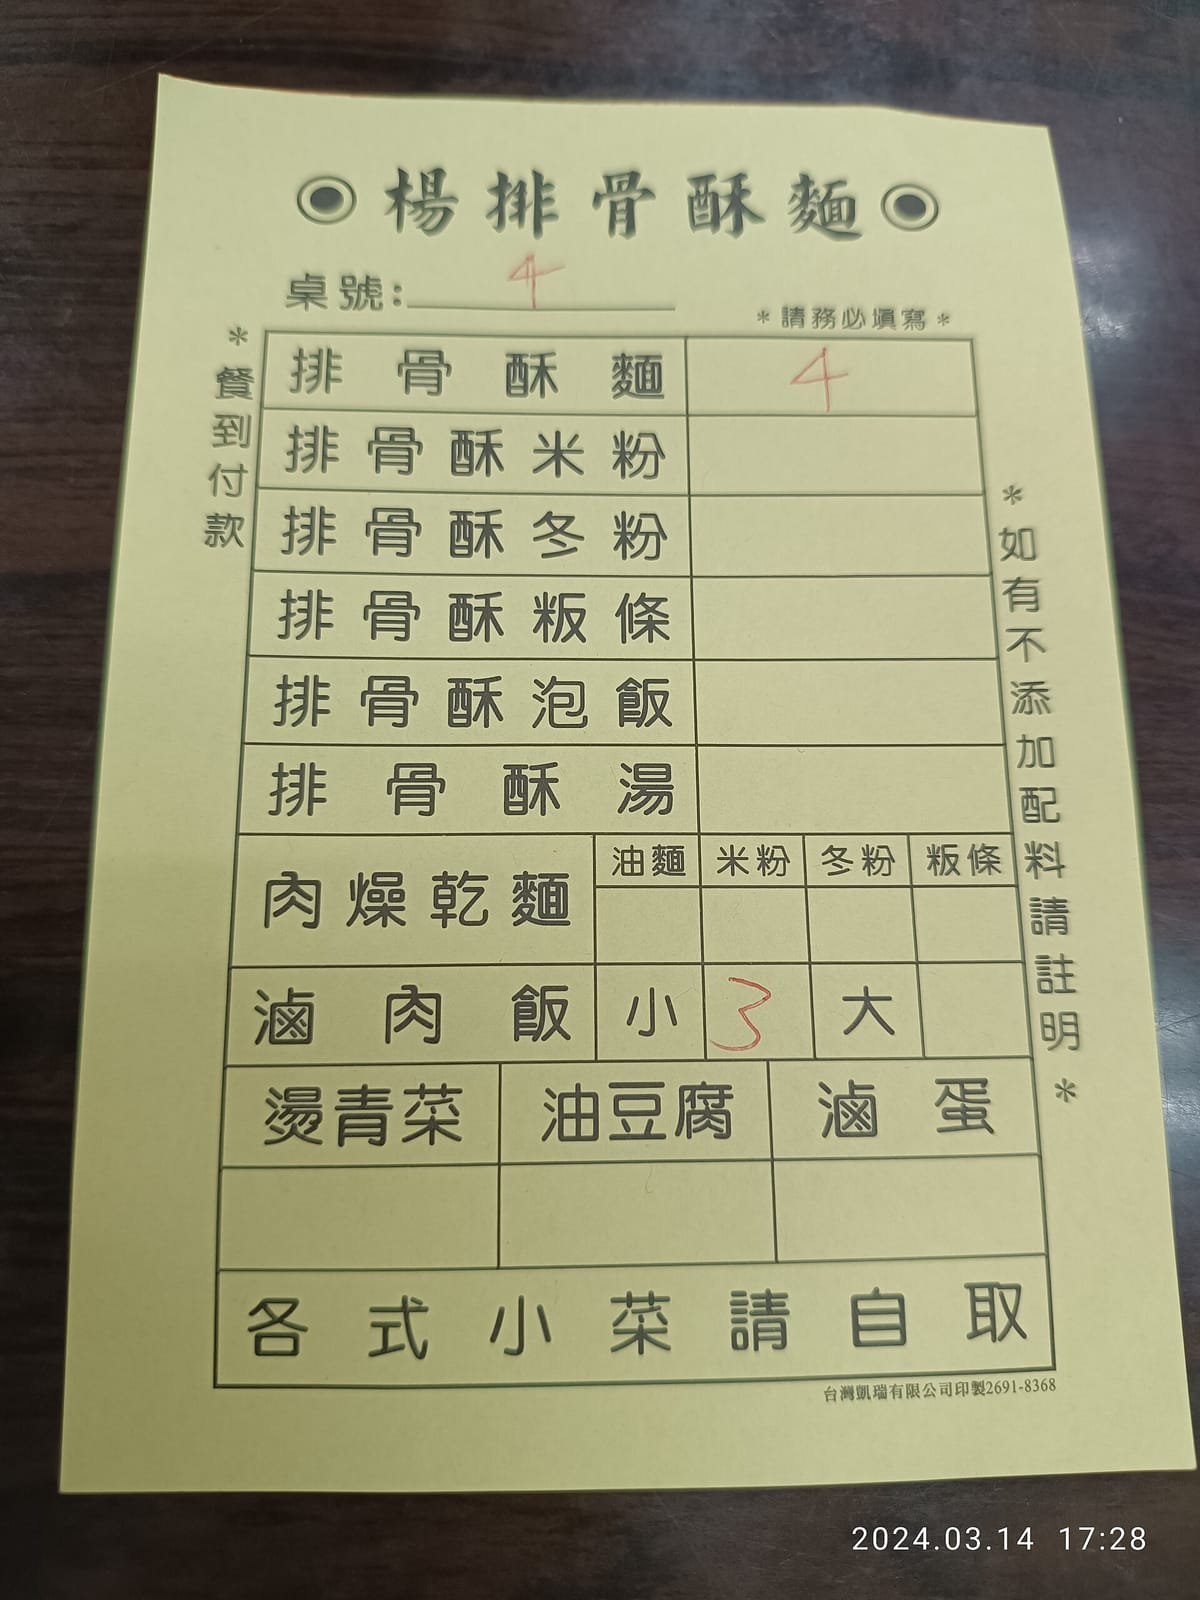 楊排骨酥麵
桌號: 4
*請務必填寫*
*餐到付款
排骨酥麵 4
排骨酥米粉
排骨酥冬粉
排骨酥粄條
排骨酥泡飯
排骨酥湯
肉燥乾麵 油麵 米粉 冬粉 粄條
滷肉飯 小 3 大
燙青菜 油豆腐 滷蛋
各式小菜請自取
*如有不添加配料請註明*
台灣凱瑞有限公司印製2691-8368
2024.03.14 17:28